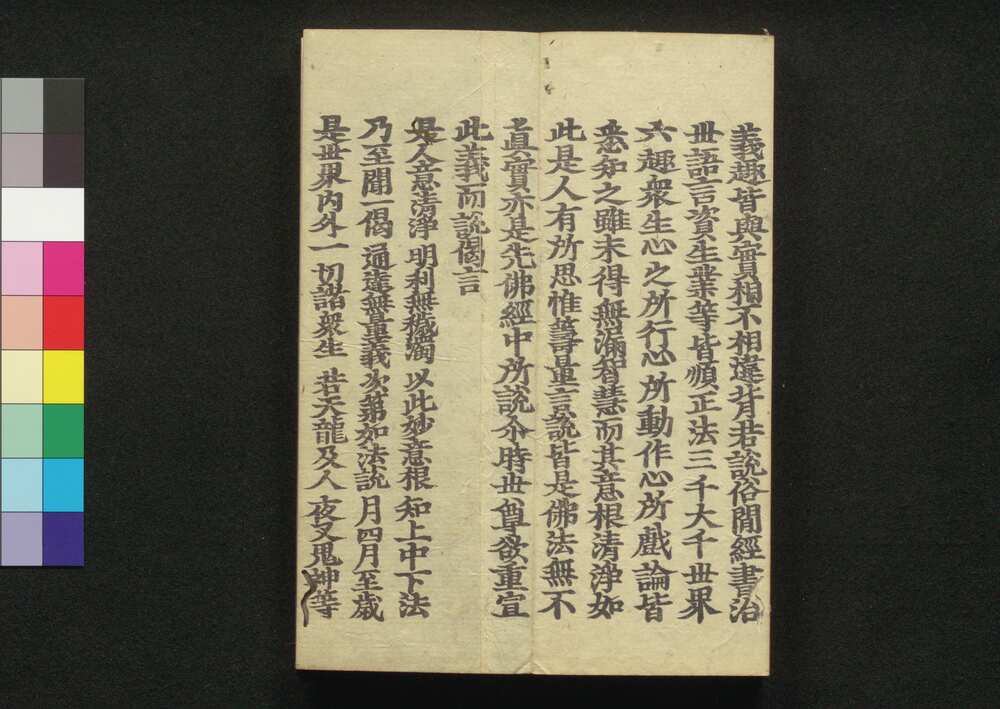 義趣皆與實相不相違背若說俗間經書治
世語言資生業等皆順正法三千大千世界
六趣衆生心之所行心所動作心所戲論皆
悉知之雖未得無漏智慧而其意根清淨如
此是人有所思惟籌量言說皆是佛法無不
眞實亦是先佛經中所說尒時世尊欲重宣
此義而說偈言
是人意清淨 明利無穢濁 以此妙意根 知上中下法
乃至聞一偈 通達無量義 次第如法說 月四月至歲
是世界內外 一切諸衆生 若天龍及人 夜叉鬼神等